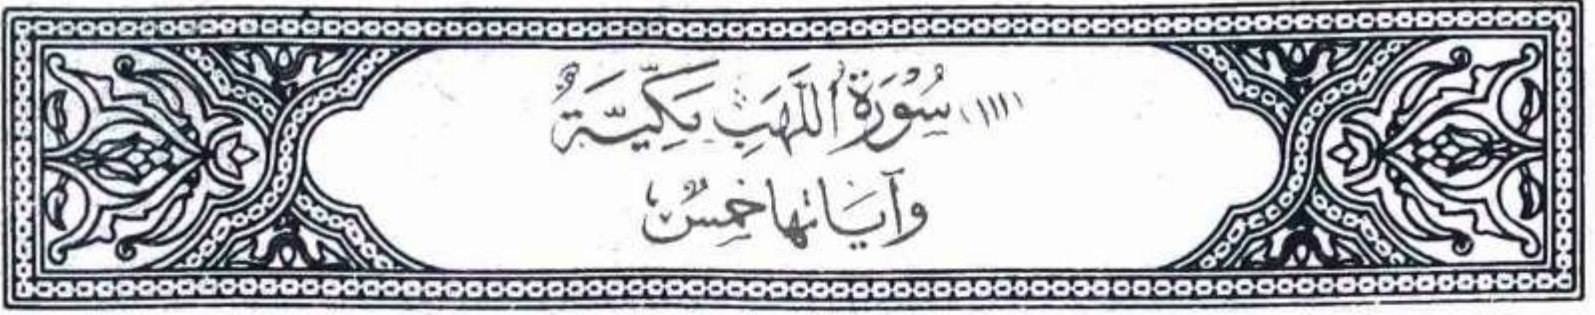 (١١١) سُوْرَةُ اللَّهَبِ مَكِّيَّةٌ
وآيَاتها خَمسٌ